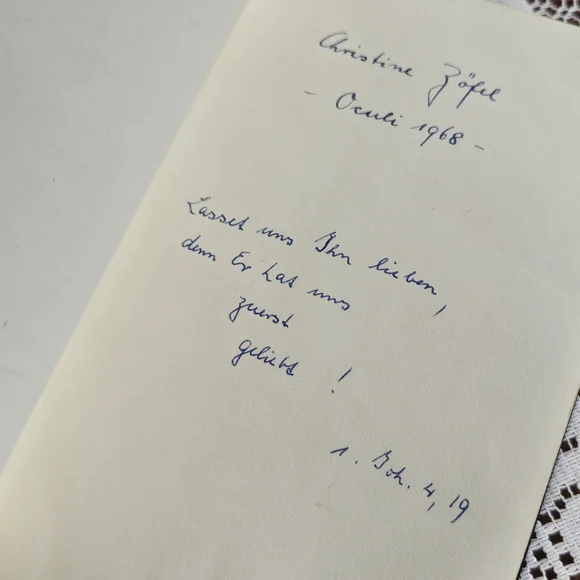 Christine Zöfel
- Oculi 1968 -
Lasset uns Ihn lieben,
denn Er hat uns
zuerst
geliebt !
1. Joh. 4, 19